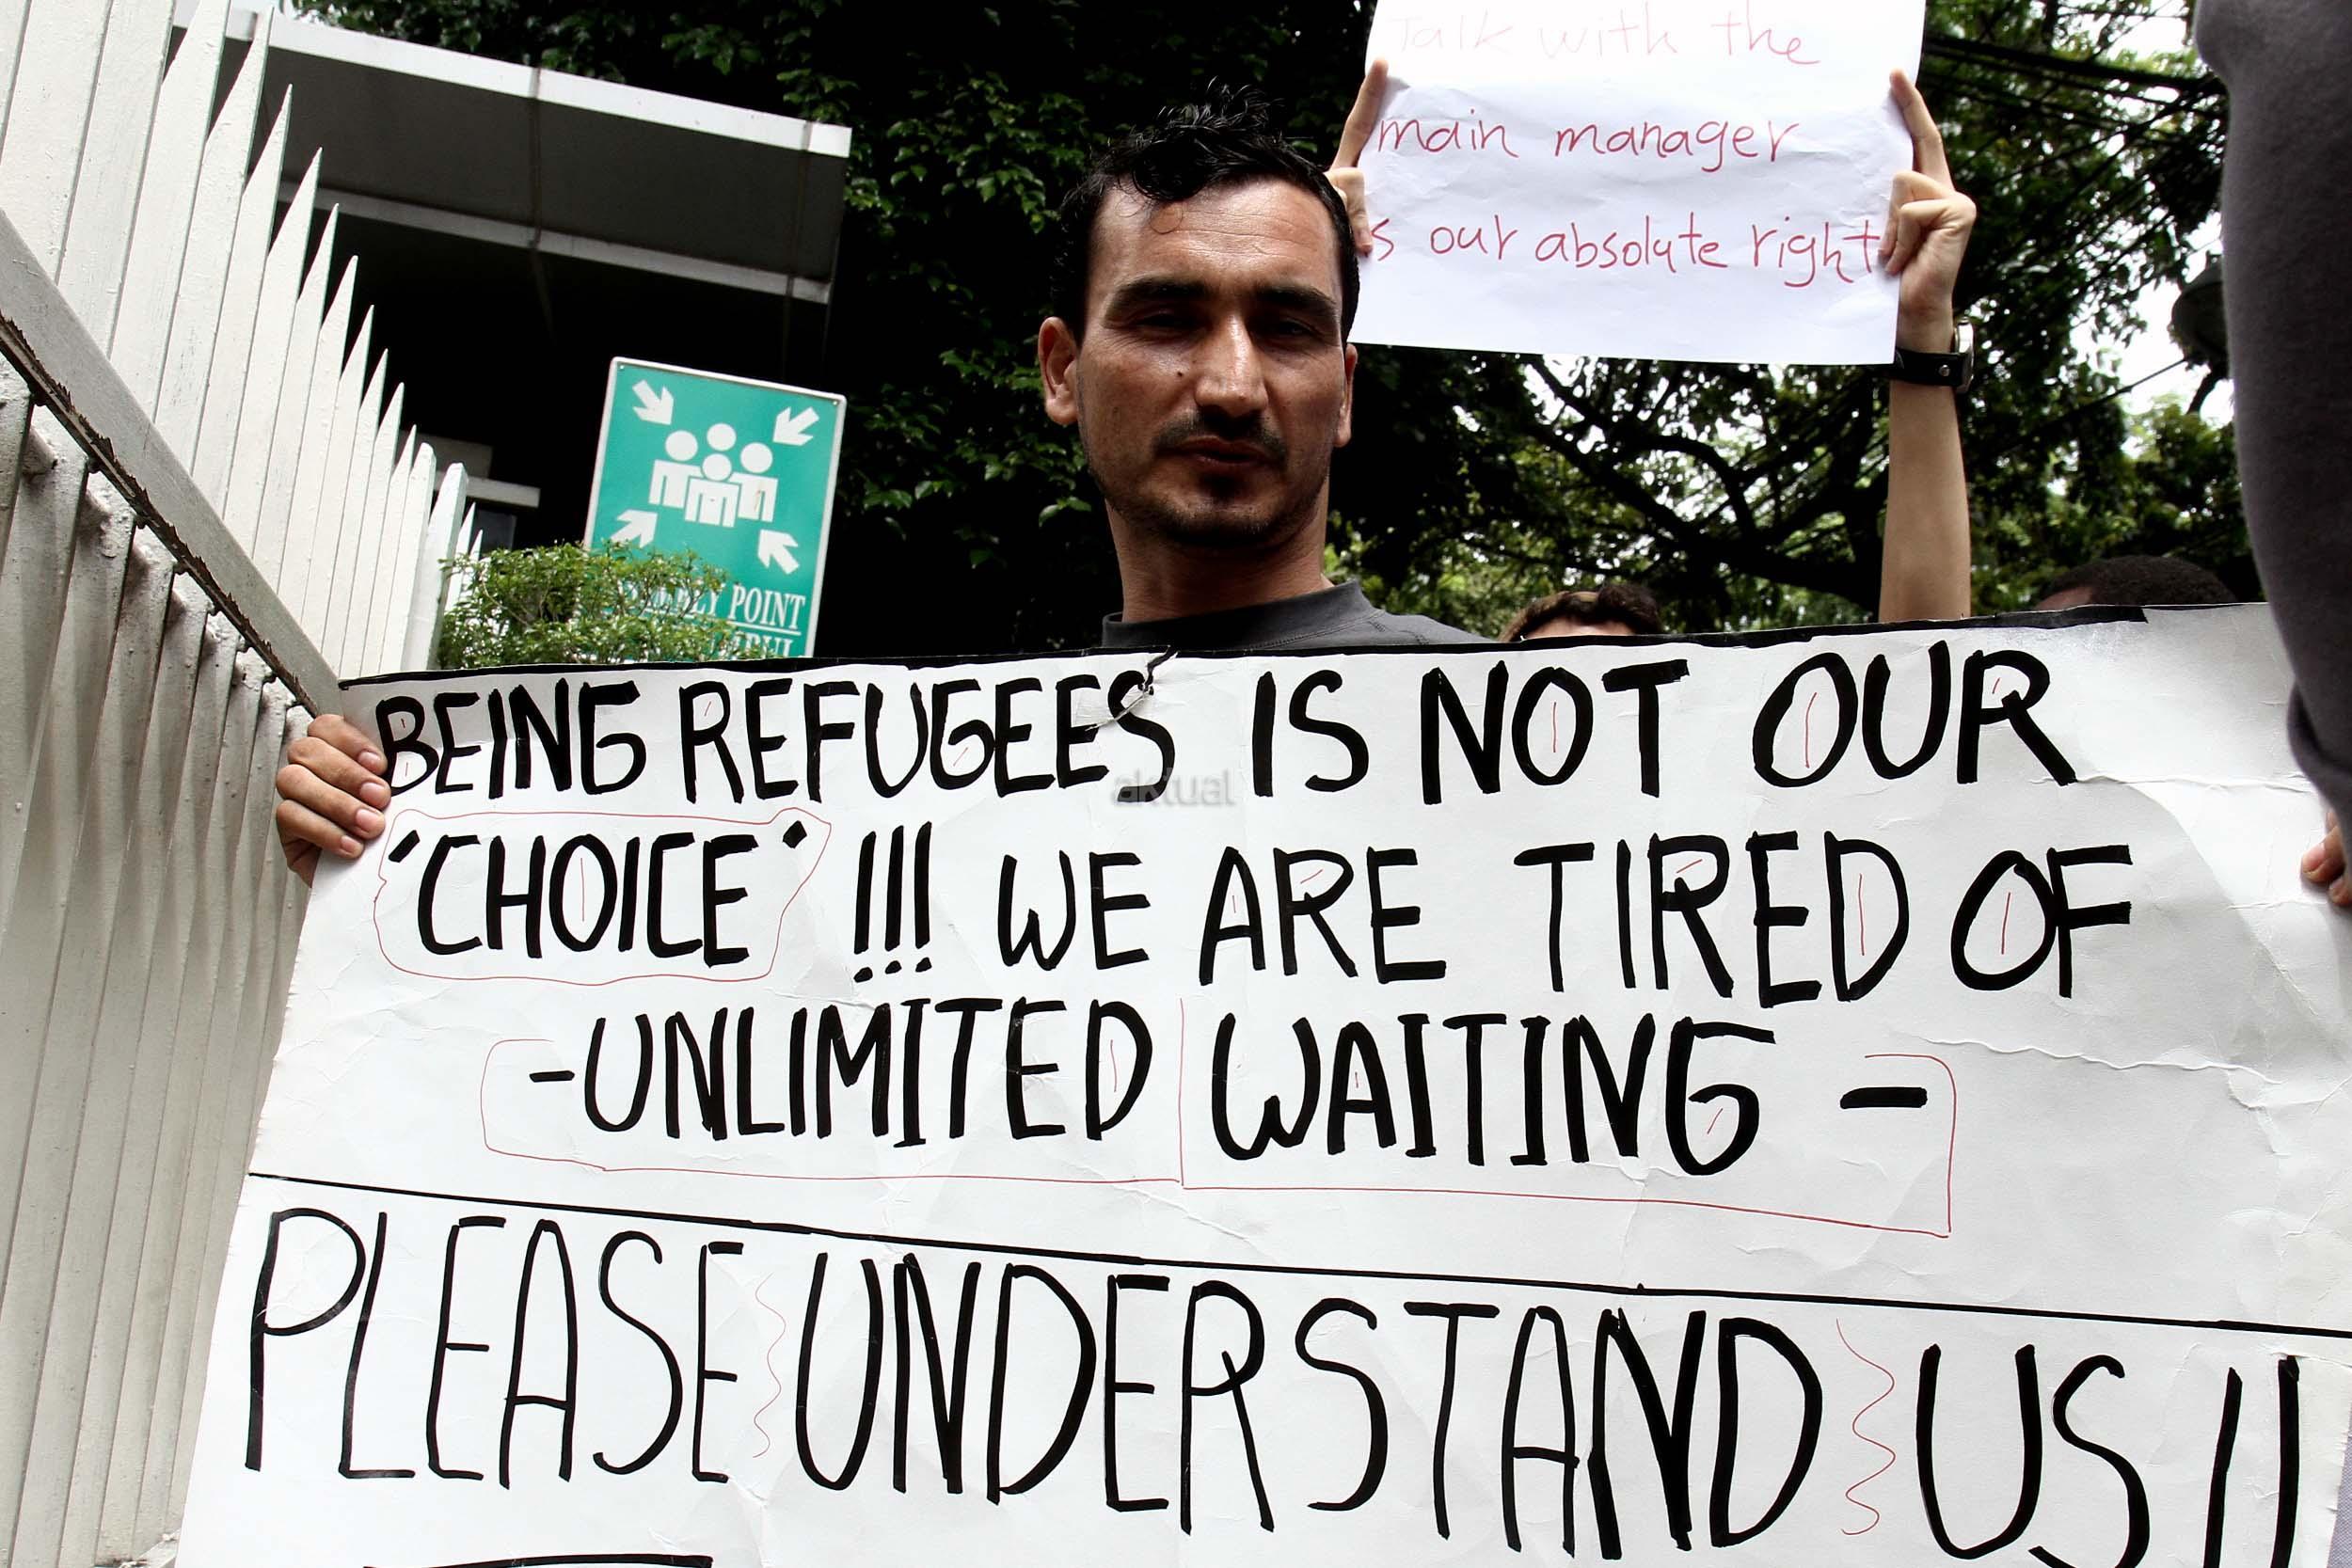 Talk with the
main manager
s our absolute right
POINT
BEING REFUGEES IS NOT OUR
'CHOICE' !!! WE ARE TIRED OF
-UNLIMITED WAITING -
PLEASE UNDERSTAND US !!
aktual